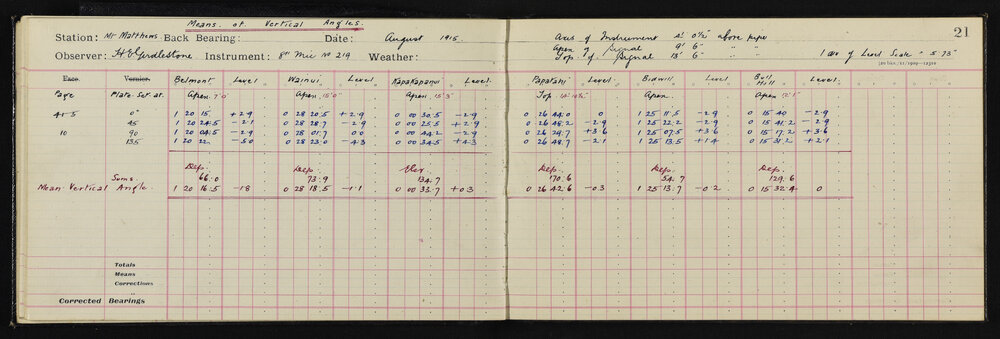 Means of Vertical Angles. 21
Station: Mt Matthews Back Bearing: Date: August 1915. Axis of Instrument 4' 0½" above pipe
Apex of Signal 9' 6" " "
Observer: H E Girdlestone Instrument: 8" Mic No 219 Weather: Top of Signal 13' 6" " " 1 div of Level Scale = 5.75"
Face. Vernier. Belmont Level Wainui Level Kapakapanui Level. Papatahi Level Bidwill Level Bull Hill Level
Page Plate Set at. Apex 7' 0" Apex 15' 0" Apex 15' 3" Top 14' 10½" Apex Apex 12' 1"
4-5 0° 1 20 15. +2.9 0 28 20.5 +2.9 0 00 30.5 -2.9 0 26 44.0 0 1 25 11.5 -2.9 0 15 40 -2.9
45 1 20 24.5 -2.1 0 28 28.7 -2.9 0 00 25.5 +2.9 0 26 48.2 -2.9 1 25 22.2 -2.9 0 15 41.2 -2.9
10 90 1 20 04.5 -2.9 0 28 01.7 0 0 0 00 44.2 -2.9 0 26 29.7 +3.6 1 25 07.5 +3.6 0 15 17.2 +3.6
135 1 20 22. -5.0 0 28 23.0 -4.3 0 00 34.5 +4.3 0 26 48.7 -2.1 1 25 13.5 +1.4 0 15 31.2 +2.1
Dep. Dep. Elev Dep. Dep. Dep.
Sums. 66.0 73.9 134.7 170.6 54.7 129.6
Mean Vertical Angle. 1 20 16.5 -1.8 0 28 18.5 -1.1 0 00 33.7 +0.3 0 26 42.6 -0.3 1 25 13.7 -0.2 0 15 32.4 0
Totals
Means
Corrections
Corrected Bearings